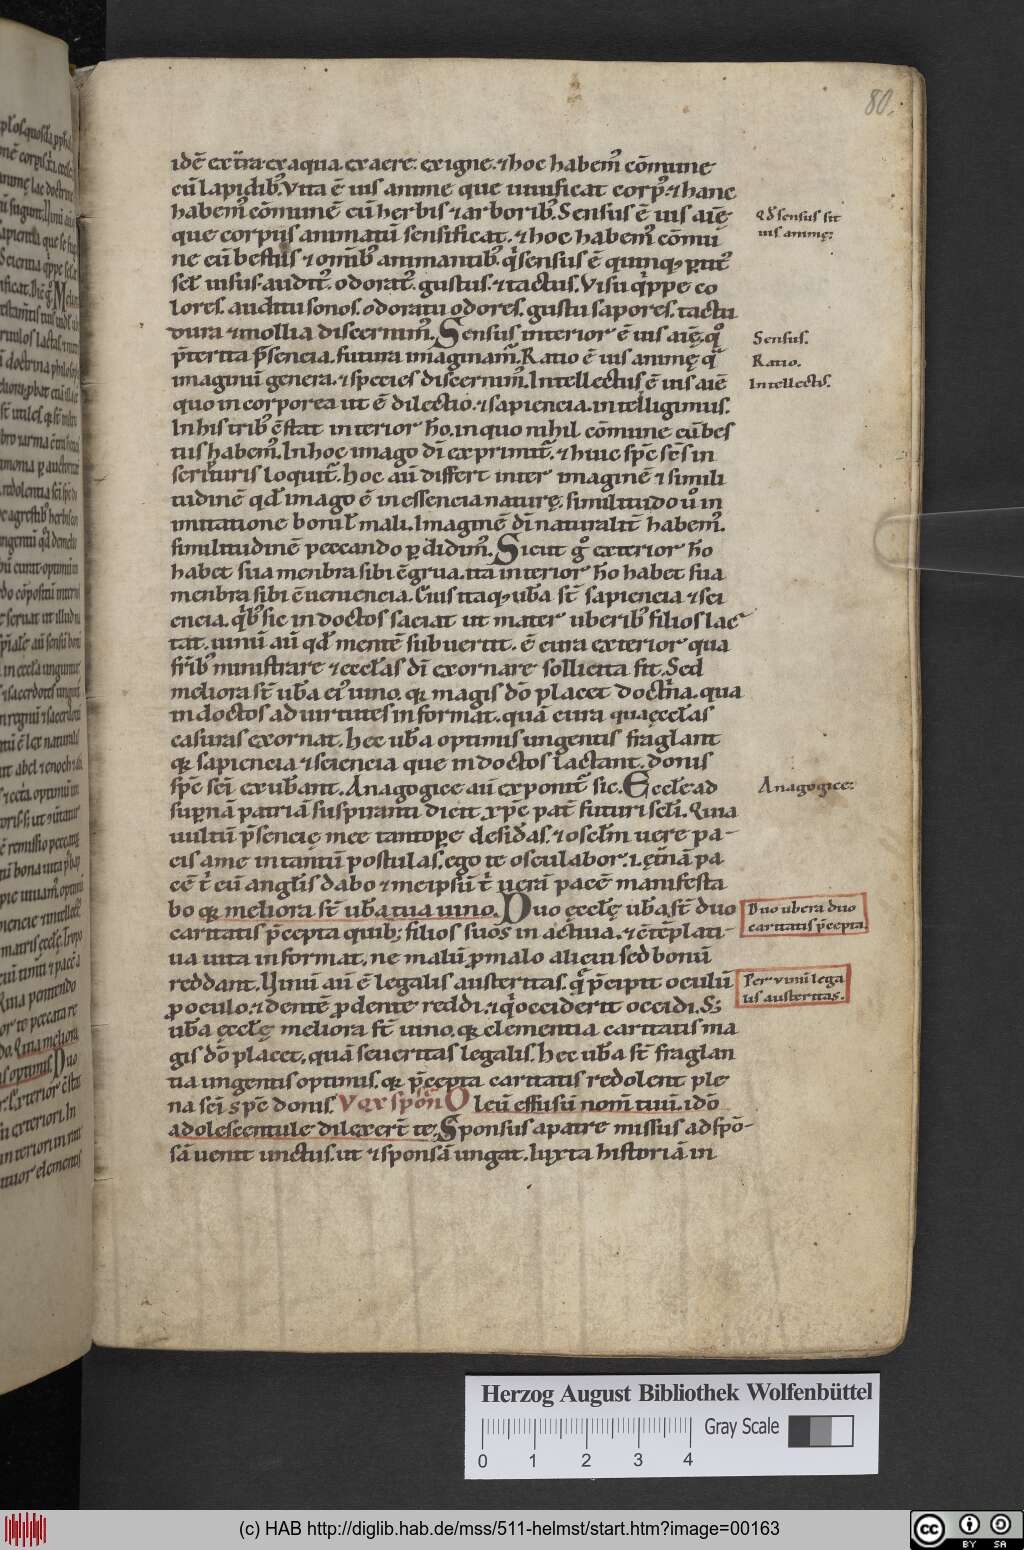 80.
idē ex t̄ra. ex aqua. ex aere. ex igne. ⁊ hoc habem᷒ cōmune
cū lapidib᷒. Vita ē uis anime que uiuificat corp᷒. ⁊ hanc
habem᷒ cōmunē cū herbis ⁊ arborib᷒. Sensus ē uis aīę
que corpus animatū sensificat. ⁊ hoc habem᷒ cōmu
ne cū bestiis ⁊ omīb᷒ animantib᷒. q̇ sensus ē quinq; ꝑtit᷒
scł uisus. audit᷒. odorat᷒. gustus. ⁊ tactus. Visu q̇ppe co
lores. auditu sonos. odoratu odores. gustu sapores. tactu
dura ⁊ mollia discernim᷒. Sensus interior ē uis aīę. q°
p̄terita p̄sencia. futura imaginam᷒. Ratio ē uis animę q̄
imaginū genera. ⁊ species discernim᷒. Intellectus ē uis aīę
quo incorporea ut ē dilectio. ⁊ sapiencia. intelligimus.
In his trib᷒ c̄stat interior hō. in quo nihil cōmune cū bes
tiis habem᷒. In hoc imago dī exprimit᷑. ⁊ huic sp̄c sc̄s in
scripturis loquit᷑. Hoc aū differt inter imaginē ⁊ simili
tudinē qđ imago ē in essencia naturę. similitudo u° in
imitatione boni ł mali. Imaginē dī naturalit̄ habem᷒.
similitudinē peccando ꝑdidim᷒. Sicut g° exterior hō
habet sua menbra sibi c̄grua. ita interior hō habet sua
menbra sibi c̄ueniencia. Cui᷒ itaq; ub̄a st̄ sapiencia ⁊ sci
encia. q̇b᷒ sic indoctos saciat ut mater uberib᷒ filios lac
tat. uinū aū qđ mentē subuertit. ē cura exterior qua
fr̄ib᷒ ministrare ⁊ eccłas dī exornare sollicita fit. Sed
meliora st̄ ub̄a ei᷒ uino. qꝛ magis dō placet doctⁱna. qua
indoctos ad uirtutes informat. quā cura qua ęccłas
casuras exornat. Hec ub̄a optimis ungentis fraglant
qꝛ sapiencia ⁊ sciencia que indoctos lactant. donis
sp̄c scī exub̄ant. Anagogice aū exponit᷑ sic. Eccłe ad
suꝑnā patriā suspiranti dicit xp̄c pat̄ futuri scłi. Quia
uultū p̄sencię mee tantoꝑe desid̄as. ⁊ oscłm uere pa-
cis a me in tantū postulas. ego te osculabor. i. ęt̄nā pa
cē t̄ cū angłis dabo ⁊ me ipsū t̄ uerā pacē manifesta
bo qꝛ meliora st̄ ub̄a tua uino. Duo ęccłę ub̄a st̄ duo
caritatis p̄cepta quib; filios suos in actiua. ⁊ c̄tēplati-
ua uita informat. ne malū ꝓ malo alicui sed bonū
reddant. Uinū aū ē legalis austeritas. q̄ p̄cipit oculū
ꝓ oculo. ⁊ dentē ꝓ dente reddi. ⁊ q̇ occiderit occidi. S;
ub̄a ęccłę meliora st̄ uino. qꝛ clementia caritatis ma
gis dō placet. quā seueritas legalis. Hec ub̄a st̄ fraglan
tia ungentis optimis. qꝛ p̄cepta caritatis redolent ple
na scī sp̄c donis. Vox spōn Oleū effusū nom̄ tuū. idō
adolescentule dilexer̄t te. Sponsus a patre missus ad spō-
sā uenit unctus. ut ⁊ sponsā ungat. Iuxta historiā in
Qđ sensus sit
uis animę:
Sensus.
Ratio.
Intellect᷒.
Anagogice:
Duo ubera duo
caritatis p̄cepta.
Per uinū lega
lis austeritas.
Herzog August Bibliothek Wolfenbüttel
Gray Scale
0 1 2 3 4
(c) HAB http://diglib.hab.de/mss/511-helmst/start.htm?image=00163
cc BY SA